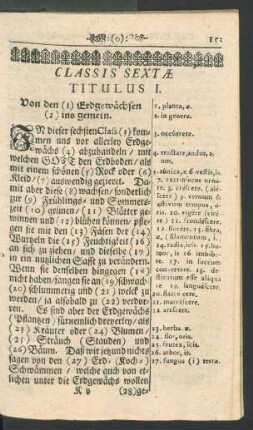 :(o):
CLASSIS SEXTÆ
TITULUS I.
Von den (1) Erdgewächsen
(2) ins gemein.
IN dieser sechsten Claß (1) kom-
men uns vor allerley Erdge-
wächs (4) abzuhandlen / mit
welchen GOTT den Erdboden / als
mit einem schönen (5) Rock oder (6)
Kleid / (7) auswendig gezieret. Da-
mit aber diese (8) wachsen / sonderlich
zur (9) Frühlings- und Sommers-
zeit (10) grünen / (11) Blätter ge-
winnen und (12) blühen können / pfle-
gen sie mit den (13) Fäsen der (14)
Wurzeln die (15) Feuchtigkeit (16)
an sich zu ziehen / und dieselbe (17)
in ein nuglichen Safft zu verändern.
Wenn sie denselben hingegen (18)
nicht haben / fangen sie an (19) schwach /
(20) schlummerig und (21) welck zu
werden / ja alsobald zu (22) verdor-
ren. Es sind aber der Erdgewächs
(Pflanzen) fürnemlich dreyerley / als
(23) Kräuter oder (24) Blumen /
(25) Sträuch (Stauden) und
(26) Bäum. Daß wir jetzund nichts
sagen von den (27) Erd- (Koch-)
Schwämmen / welche auch von et-
lichen unter die Erdgewächs wollen
K v (28) ge-
1. planta, æ.
2. in genere.
3. occurrere.
4. tractare, andus, a,
um.
5. tunica, æ 6 vestis, is.
7. extrinsecus orna-
re. 8. crescere.
9. verno &
æstivo tempus, o-
ris. 10. virere
11. frondescere. 12. flo-
rere. 13. fibra,
æ,
14. radix, icis. 15. hu-
mor, oris. 16. in se
17. in succum
convertere.
18.
19. languescere.
20. flaccere.
21. marcescere.
22. arescere.
23. herba, æ.
24. flos, oris.
25. frutex, icis.
26. arbor, is.
27. fungus (i) terræ.